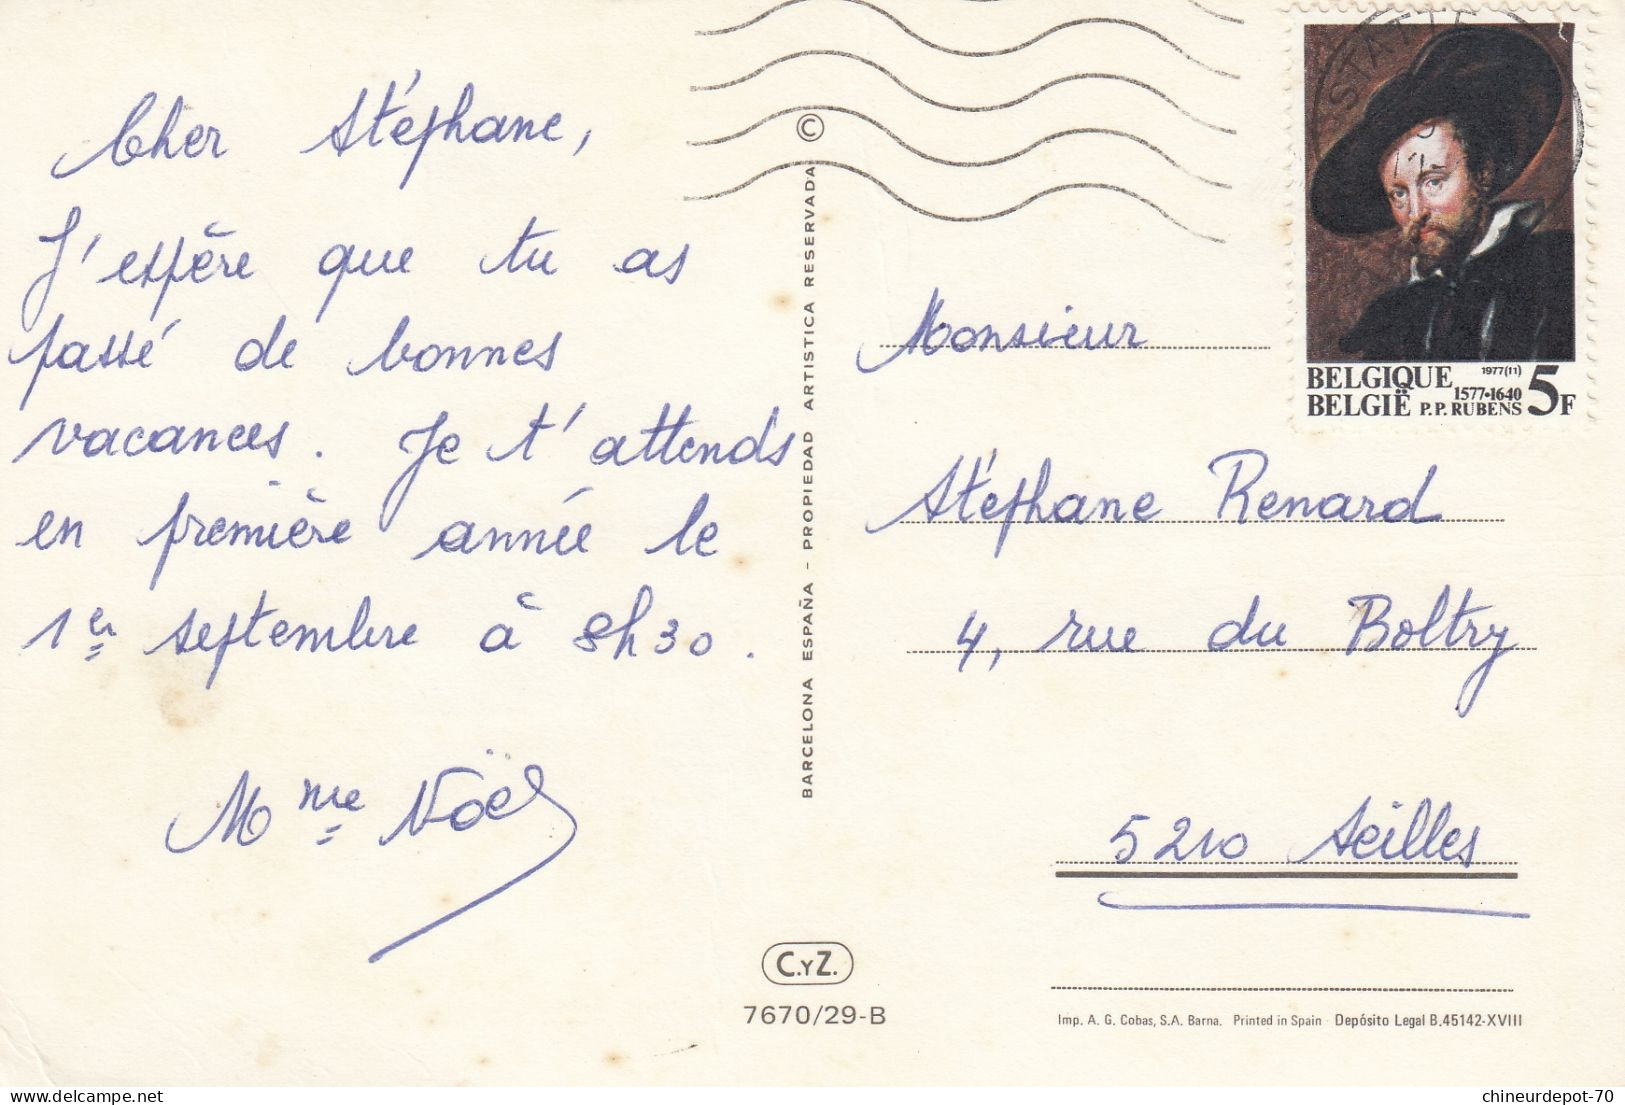 Cher Stéphane,
J'espère que tu as
passé de bonnes
vacances. Je t'attends
en première année le
1er septembre à 8h30.
Mme Noël
©
BARCELONA ESPAÑA - PROPIEDAD ARTISTICA RESERVADA
C.YZ.
7670/29-B
STATTE
BELGIQUE 1977(11)
BELGIË 1577•1640
P.P. RUBENS 5F
Monsieur
Stéphane Renard
4, rue du Boltry
5210 Seilles
Imp. A. G. Cobas, S.A. Barna. Printed in Spain - Depósito Legal B.45142-XVIII
chineurdepot-70